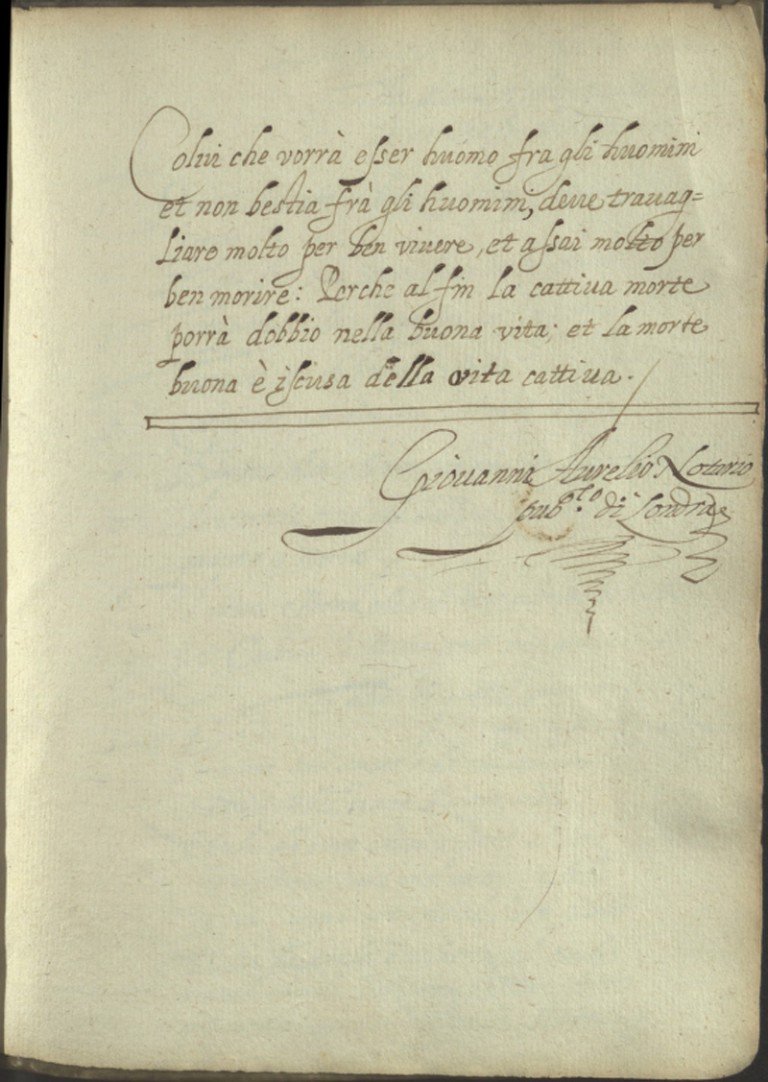 Colui che vorrà esser huomo fra gli huomini
et non bestia frà gli huomini, deue trauag=
liare molto per ben viuere, et assai molto per
ben morire: Perche al fin la cattiua morte
porrà dobbio nella buona vita; et la morte
buona è iscusa della vita cattiua.
Giouanni Aurelio Notario
pub.co di Londra